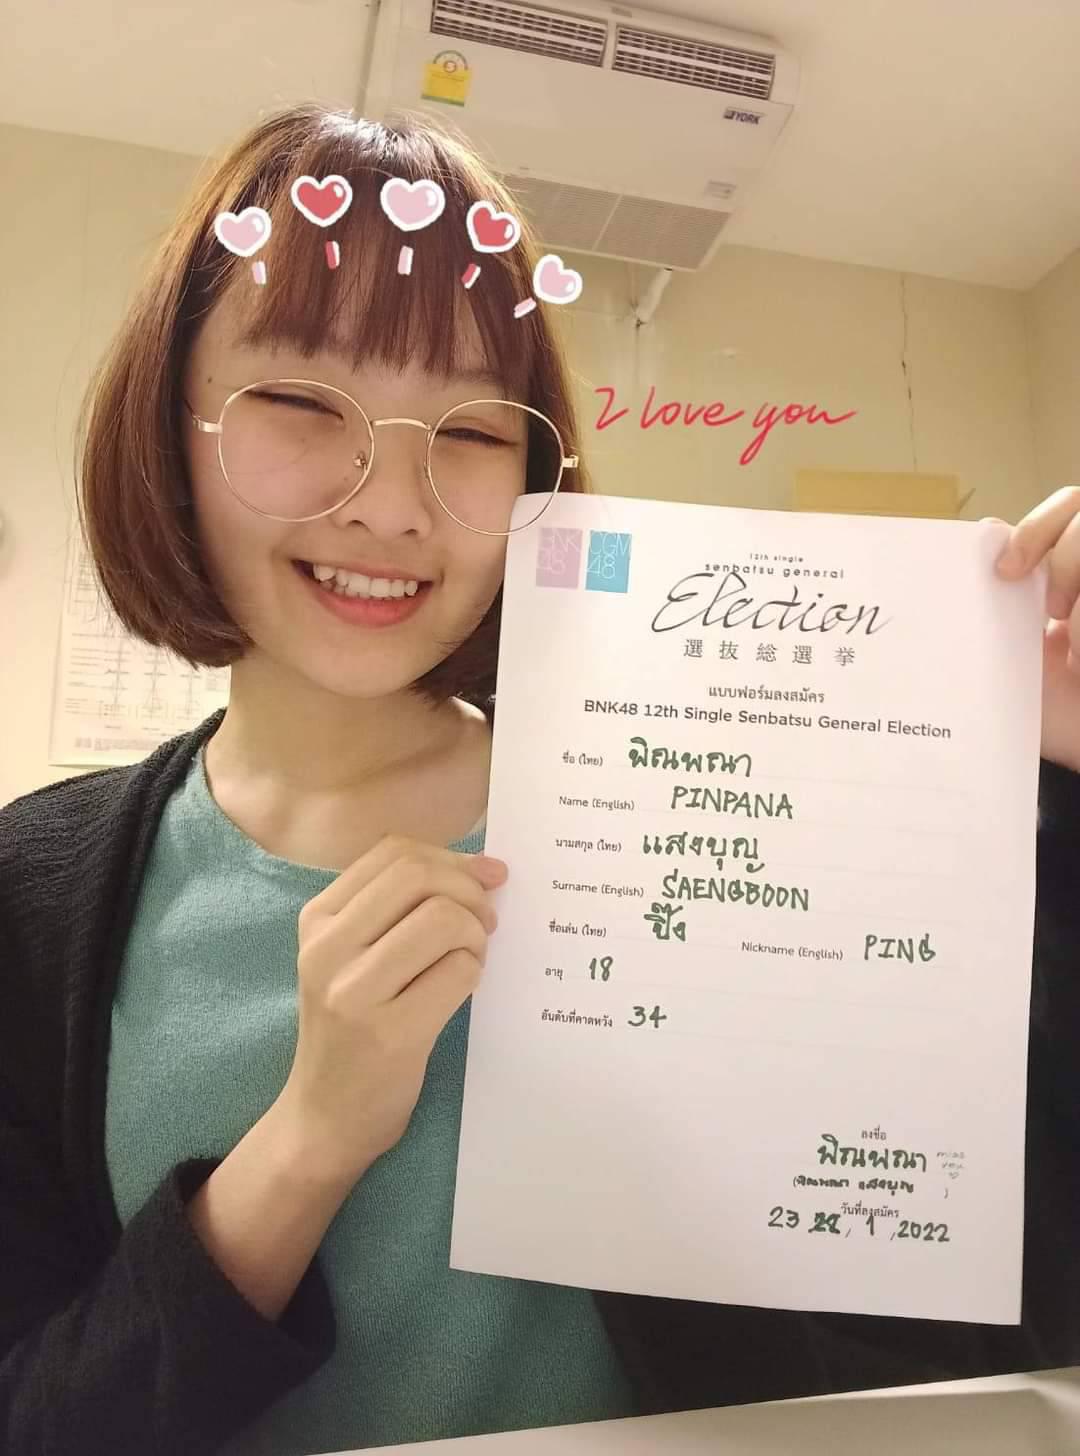 YORK
I love you
BNK
48
CGM
48
12th single
senbatsu general
Election
選抜総選挙
แบบฟอร์มลงสมัคร
BNK48 12th Single Senbatsu General Election
ชื่อ (ไทย) พิณพณา
Name (English) PINPANA
นามสกุล (ไทย) แสงบุญ
Surname (English) SAENGBOON
ชื่อเล่น (ไทย) ปิ๊ง Nickname (English) PING
อายุ 18
อันดับที่คาดหวัง 34
ลงชื่อ
พิณพณา miss you
(พิณพณา แสงบุญ)
วันที่ลงสมัคร
23, 1, 2022